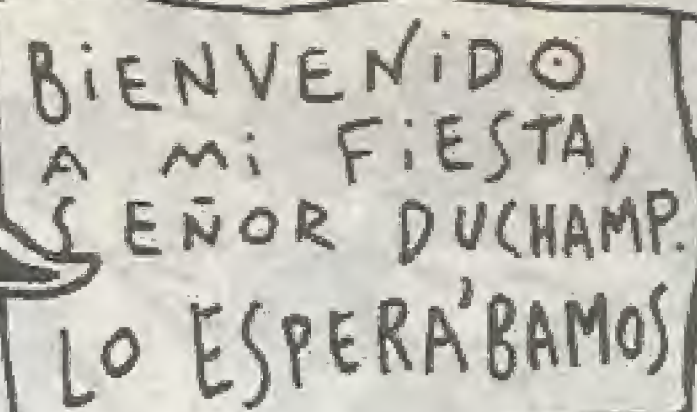 BiENVENiDO
A Mi FiESTA,
SEÑOR DUCHAMP.
LO ESPERÁBAMOS